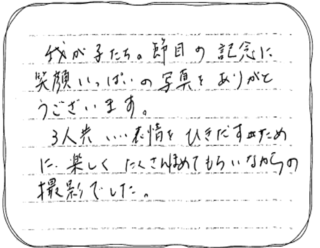 我が子たち。節目の記念に
笑顔いっぱいの写真をありがと
うございます。
3人共いい表情をひきだすため
に楽しくたくさんほめてもらいながらの
撮影でした。